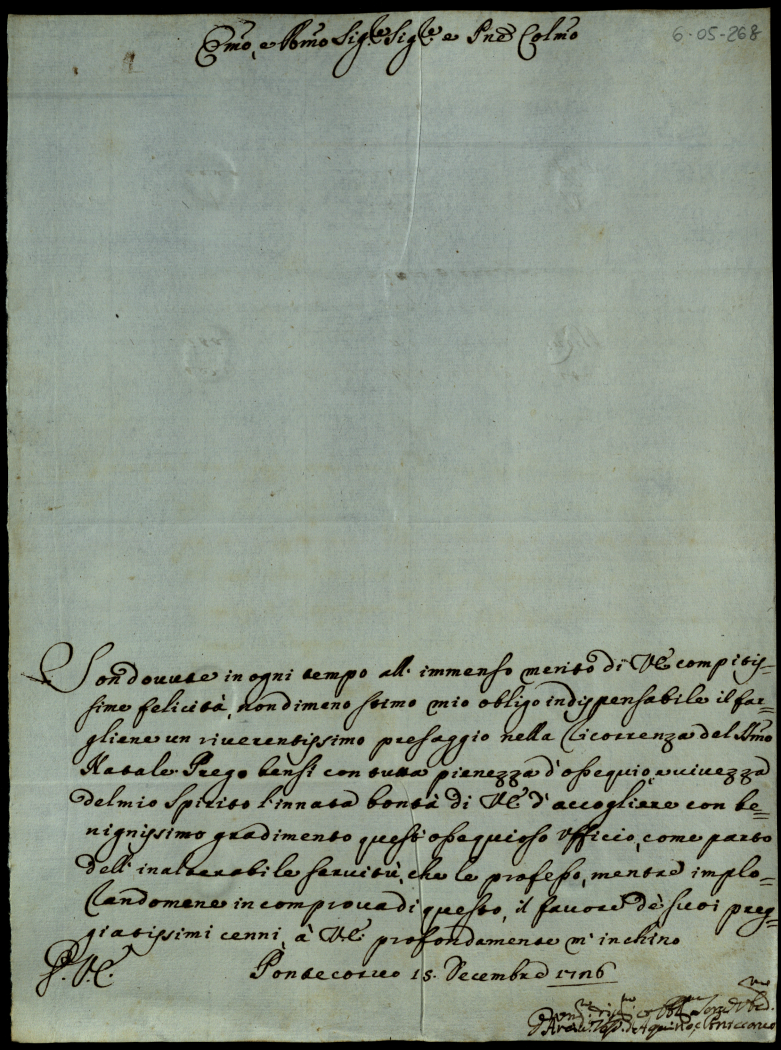 Emo, e Rmo Sig.re Sig.re e Pne Colmo
6-05-268
Son dovute in ogni tempo all' immenso merito di V.E. compitis-
sime felicità, nondimeno stimo mio obligo indispensabile il far-
gliene un riverentissimo presaggio nella ricorrenza del SSmo
Natale. Prego bensì con tutta pienezza d'ossequio, e vivezza
del mio Spirito l'innata bontà di V.E. d'accogliere con be=
nignissimo gradimento quest'ossequioso Ufficio, come parto
dell' inalterabile servitù, che le professo, mentre implo=
randomene in comprova di questo, il favore de' suoi preg-
giatissimi cenni, à V.E. profondamente m'inchino
P. V.E. Pontecorvo 15. Decembre 1726
d'Aquino, e Pontecorvo